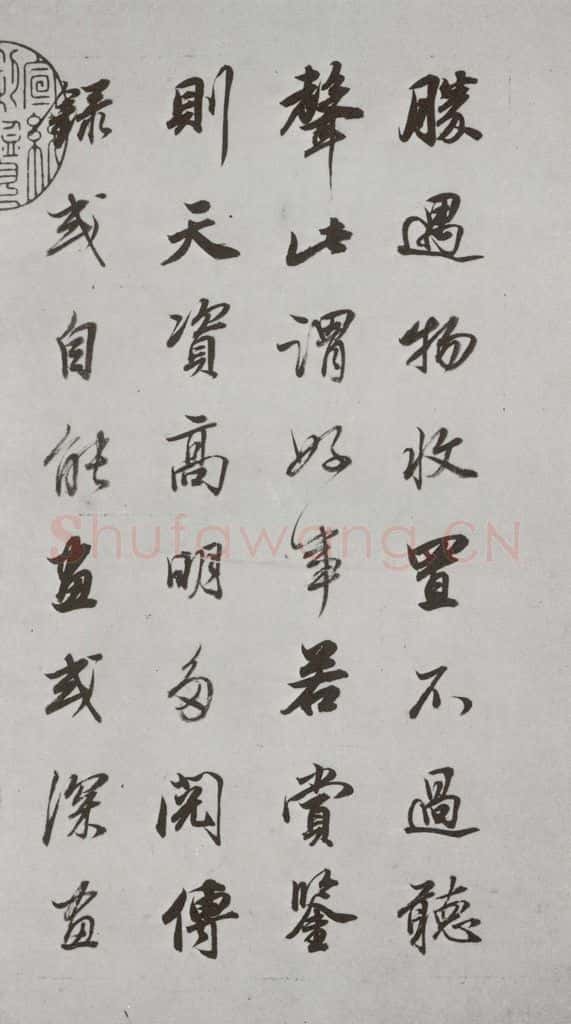 勝遇物收置不過聽
聲此謂好事若賞鑒
則天資高明多閱傳
録或自能畫或深畫
Shufawang.CN